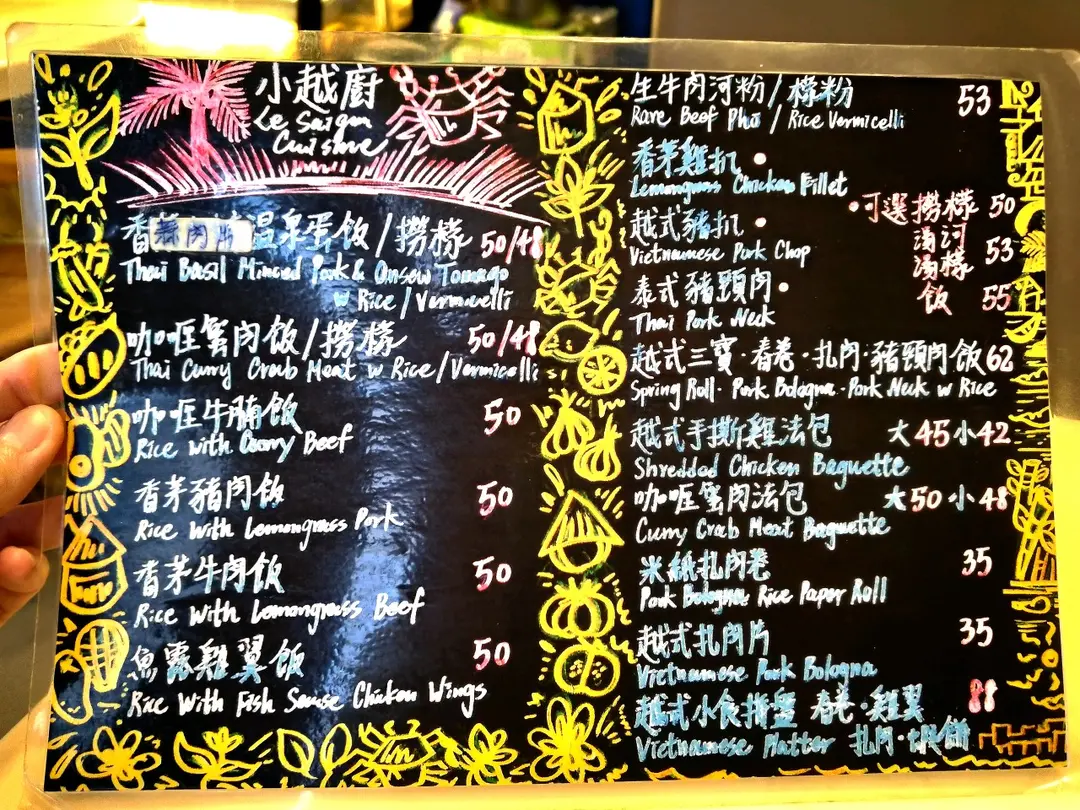 小越廚
Le Saigon
Cuisine
香茅肉片溫泉蛋飯/撈檬 50/48
Thai Basil Minced Pork & Onsen Tomago
w Rice/Vermicelli
咖喱蟹肉飯/撈檬 50/48
Thai Curry Crab Meat w Rice/Vermicelli
咖喱牛腩飯 50
Rice with Curry Beef
香茅豬肉飯 50
Rice with Lemongrass Pork
香茅牛肉飯 50
Rice with Lemongrass Beef
魚露雞翼飯 50
Rice With Fish Sause Chicken Wings
生牛肉河粉/檬粉 53
Rare Beef Pho / Rice Vermicelli
香茅雞扒 •
Lemongrass Chicken Fillet
•可選撈檬 50
越式豬扒 •
湯河
Vietnamese Pork Chop
湯檬 53
泰式豬頸肉 •
飯 55
Thai Pork Neck
越式三寶·春卷·扎肉·豬頸肉飯 62
Spring Roll · Pork Bologna · Pork Neck w Rice
越式手撕雞法包 大45 小42
Shredded Chicken Baguette
咖喱蟹肉法包 大50 小48
Curry Crab Meat Baguette
米紙扎肉卷 35
Pork Bologna Rice Paper Roll
越式扎肉片 35
Vietnamese Pork Bologna
越式小食拼盤 春卷·雞翼 88
Vietnamese Platter 扎肉·蝦餅